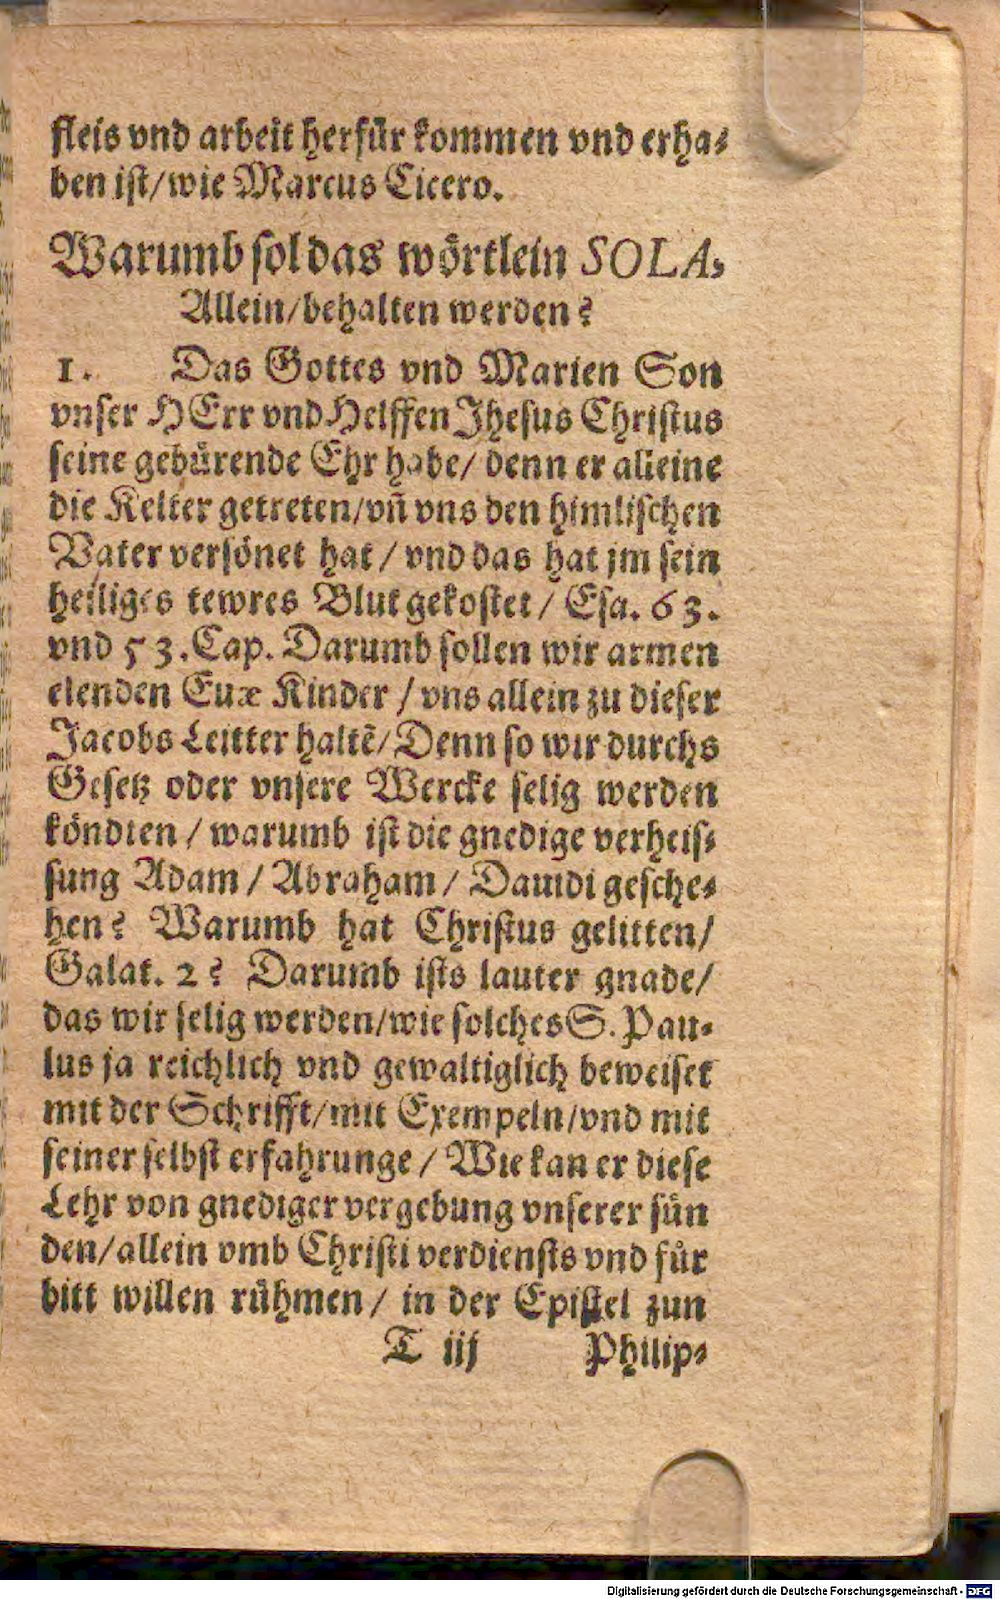 fleis vnd arbeit herfür kommen vnd erha⸗
ben ist/wie Marcus Cicero.
Warumb sol das wörtlein SOLA,
Allein/behalten werden?
1. Das Gottes vnd Marien Son
vnser HErr vnd Helffen Jhesus Christus
seine gebürende Ehr habe/ denn er alleine
die Kelter getreten/vn̄ vns den himlischen
Vater versönet hat/ vnd das hat jm sein
heiliges tewres Blut gekostet/ Esa. 63.
vnd 53. Cap. Darumb sollen wir armen
elenden Euæ Kinder/ vns allein zu dieser
Jacobs Leitter haltē/ Denn so wir durchs
Gesetz oder vnsere Wercke selig werden
köndten/ warumb ist die gnedige verheis⸗
sung Adam/ Abraham/ Dauidi gesche⸗
hen? Warumb hat Christus gelitten/
Galat. 2? Darumb ists lauter gnade/
das wir selig werden/wie solches S. Pau⸗
lus ja reichlich vnd gewaltiglich beweiset
mit der Schrifft/mit Exempeln/vnd mit
seiner selbst erfahrunge/ Wie kan er diese
Lehr von gnediger vergebung vnserer sün
den/allein vmb Christi verdiensts vnd für
bitt willen rühmen/ in der Epistel zun
T iij Philip⸗
Digitalisierung gefördert durch die Deutsche Forschungsgemeinschaft - DFG